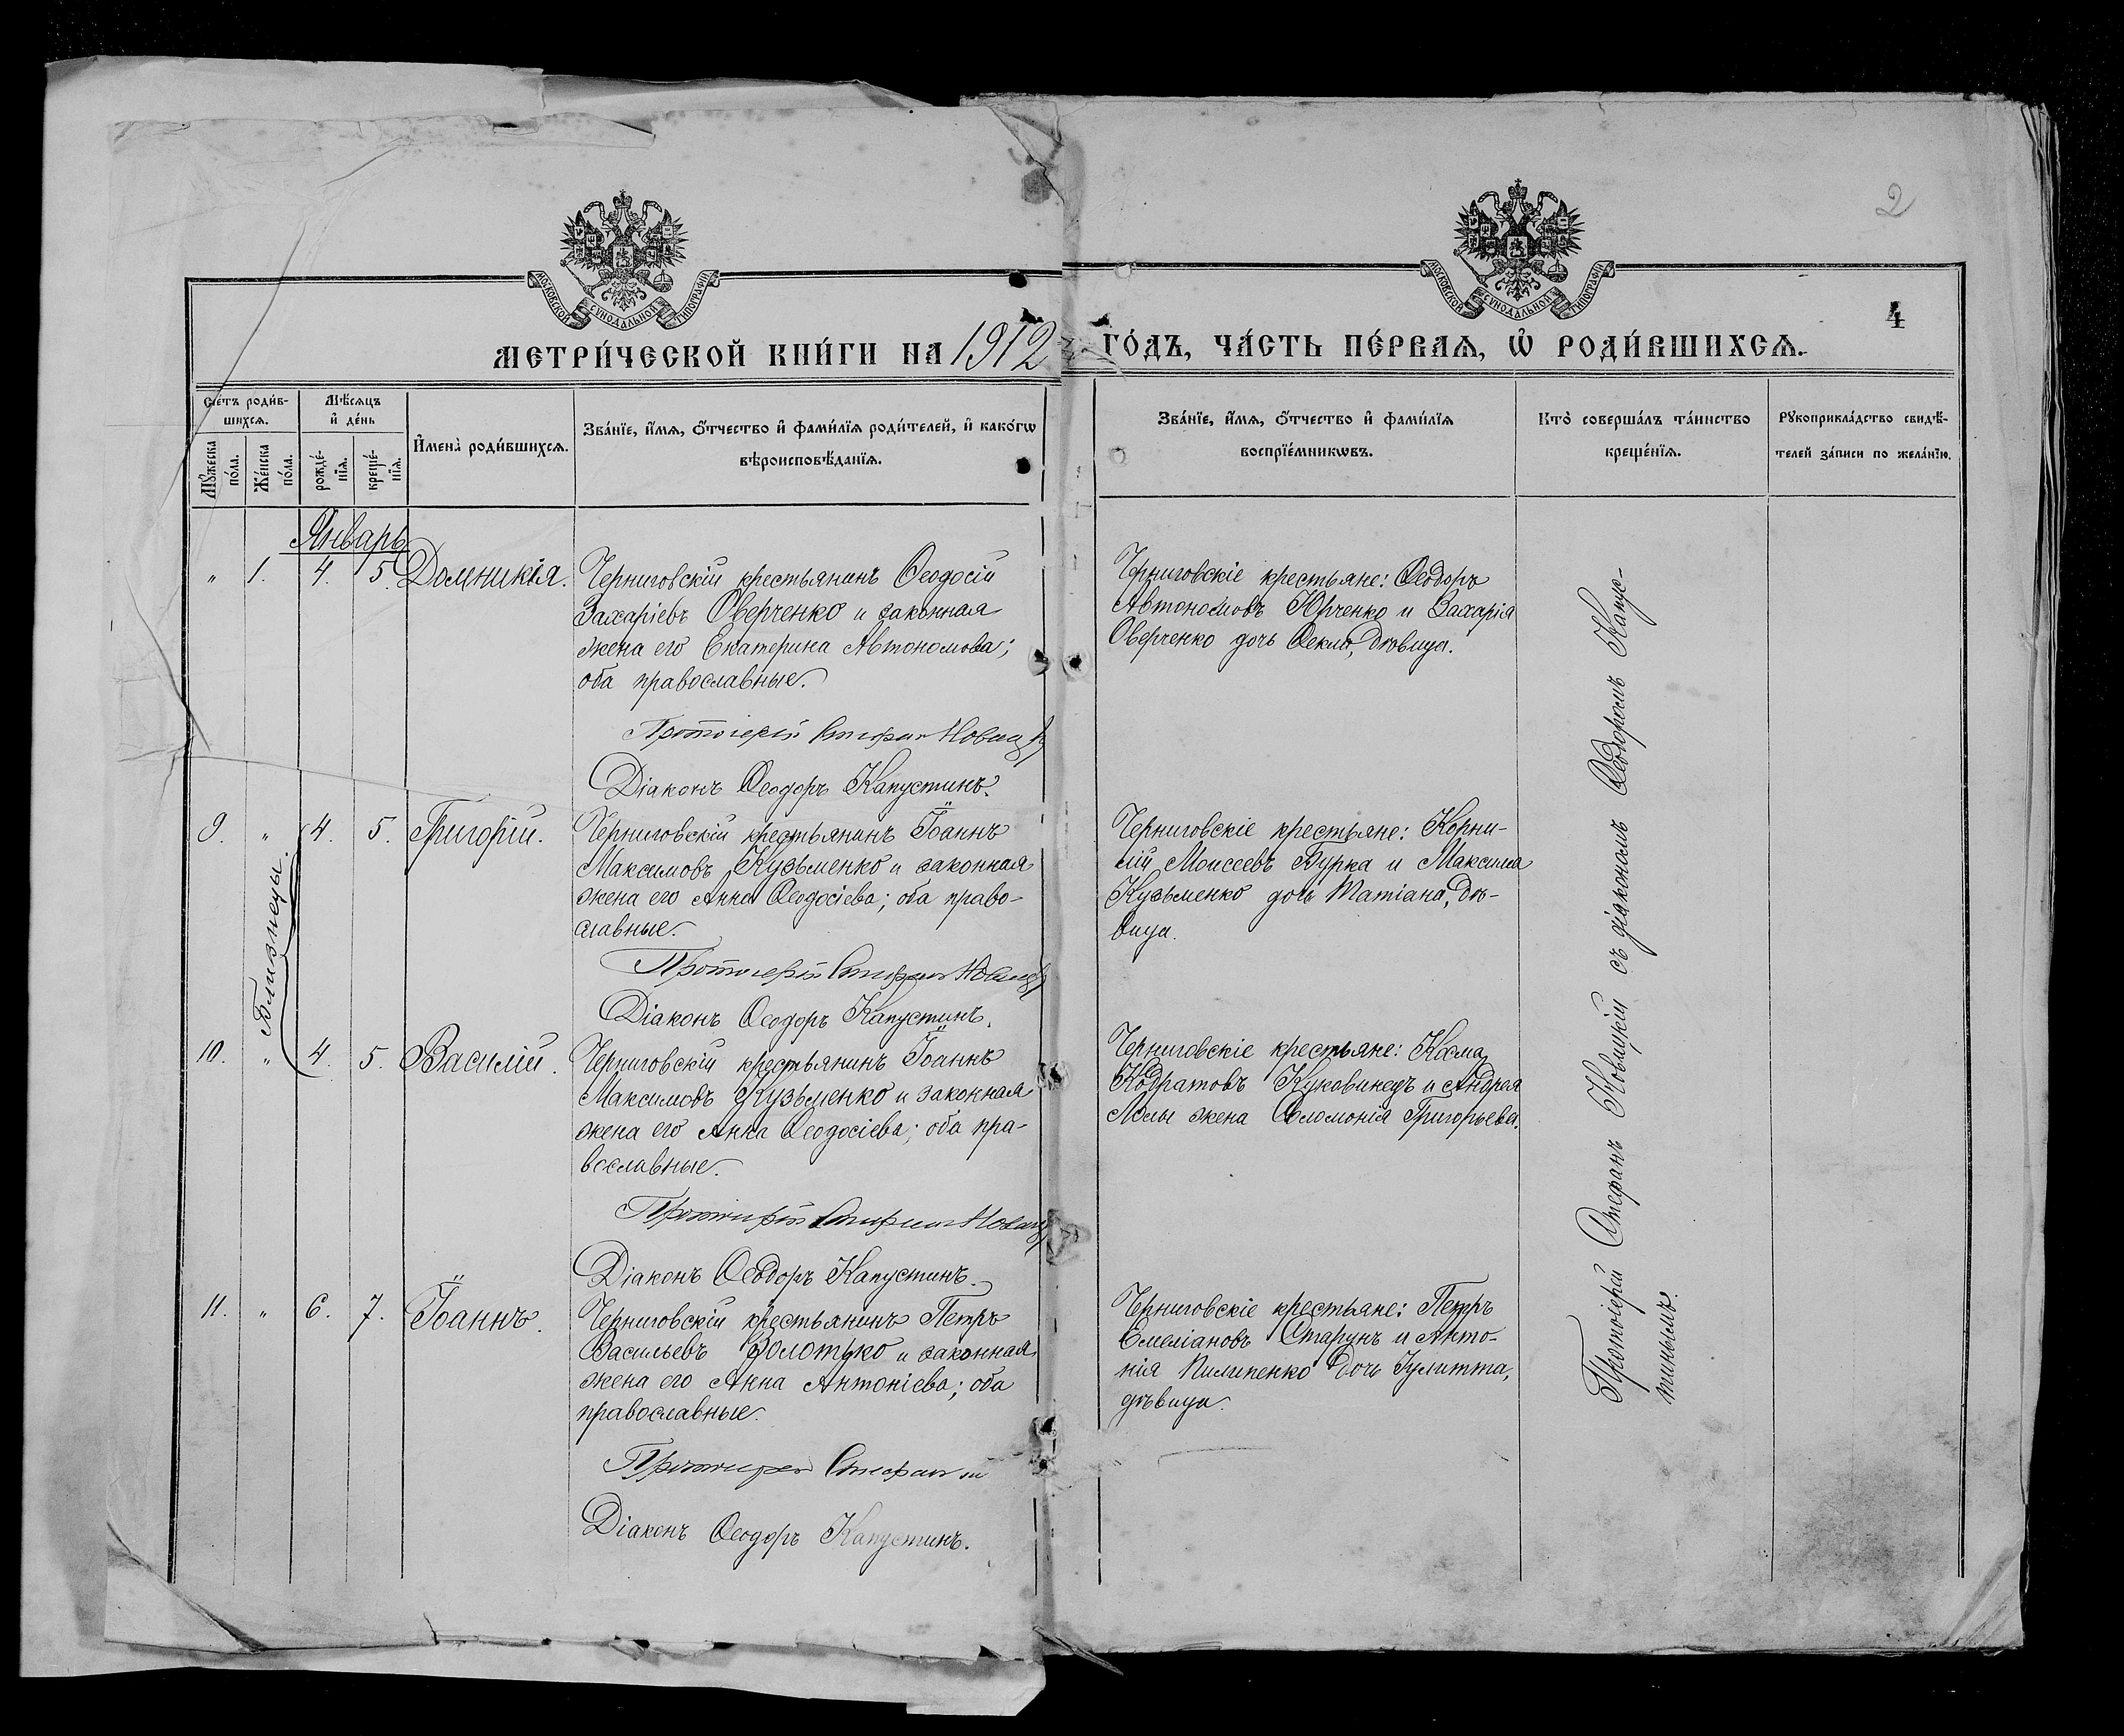 2
МОСКОВСКОЙ СУНОДАЛЬНОЙ ТИПОГРАФІИ
МОСКОВСКОЙ СУНОДАЛЬНОЙ ТИПОГРАФІИ
4
МЕТРИ́ЧЕСКОЙ КНИ́ГИ НА 1912 ГО́ДЪ, ЧА́СТЬ ПЕ́РВАѦ, Ѡ҆ РОДИ́ВШИХСѦ.
Сче́тъ роди́в-
шихсѧ.
Мꙋ́жеска
по́ла.
Же́нска
по́ла.
Мѣ́сѧцъ
и҆ де́нь
рожде́-
нїѧ.
креще́-
нїѧ.
И҆мена̀ роди́вшихсѧ.
Зва́нїе, и҆́мѧ, ѻ҆́тчество и҆ фами́лїѧ роди́телей, и҆ како́гѡ
вѣроисповѣ́данїѧ.
Зва́нїе, и҆́мѧ, ѻ҆́тчество и҆ фами́лїѧ
воспрїе́мникѡвъ.
Кто̀ соверша́лъ та́инство
креще́нїѧ.
Рꙋкоприкла́дство свидѣ́-
телей за́писи по жела́нїю.
Январь
" 1. 4. 5. Домникія.
Черниговскій крестьянинъ Ѳеодосій
Захаріевъ Оверченко и законная
жена его Екатерина Автономова;
оба православные.
Протоіерей Стефанъ Новицкій
Діаконъ Ѳеодоръ Капустинъ.
Черниговскіе крестьяне: Ѳеодоръ
Автономовъ Юрченко и Захарія
Оверченко дочь Ѳекла, дѣвица.
9. " 4. 5. Григорій.
Близнецы.
Черниговскій крестьянинъ Іоаннъ
Максимовъ Кузьменко и законная
жена его Анна Ѳеодосіева; оба право-
славные.
Протоіерей Стефанъ Новицкій
Діаконъ Ѳеодоръ Капустинъ.
Черниговскіе крестьяне: Корни-
лій Моисеевъ Бурка и Максима
Кузьменко дочь Татіана, дѣ-
вица.
10. " 4. 5. Василій.
Черниговскій крестьянинъ Іоаннъ
Максимовъ Кузьменко и законная
жена его Анна Ѳеодосіева; оба пра-
вославные.
Протоіерей Стефанъ Новицкій
Діаконъ Ѳеодоръ Капустинъ.
Черниговскіе крестьяне: Косма
Кодратовъ Куковинецъ и Андрея
жена Соломонія Григорьева.
11. " 6. 7. Іоаннъ.
Черниговскій крестьянинъ Петръ
Васильевъ Золотько и законная
жена его Анна Антоніева; оба
православные.
Протоіерей Стефанъ
Діаконъ Ѳеодоръ Капустинъ.
Черниговскіе крестьяне: Петръ
Емеліановъ Старунъ и Анто-
нія Пилипенко дочь Іулитта,
дѣвица.
Протоіерей Стефанъ Новицкій съ діакономъ Ѳеодоромъ Капус-
тинымъ.